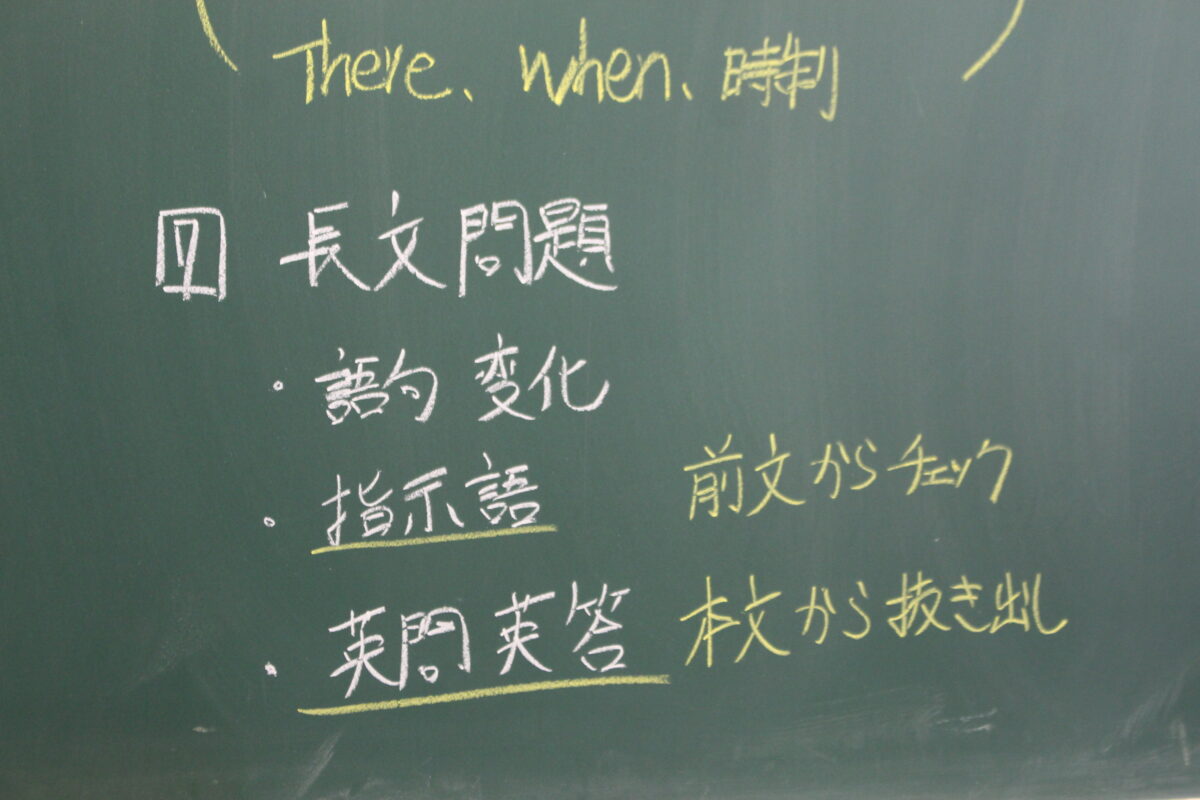 (There、when、時制)
7 長文問題
・語句変化
・指示語 前文からチェック
・英問英答 本文から抜き出し